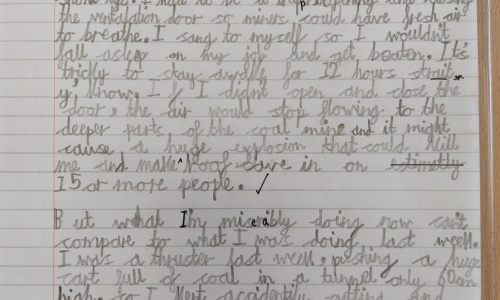 had to be a trapper, opening and closing
the ventalation door so miners, could have fresh air
to breathe. I sang to myself so I wouldn't
fall asleep on my job and get beaten. It's
tricky to stay awake for 12 hours strait
y, know. If I didn't open and close the
door, the air would stop flowing to the
deeper parts of the coal mine and it might
cause a huge explosion that could kill
me and make ^ roof cave in on
15 or more people. ✓
But what I'm miserably doing now can't
compare to what I was doing last week.
I was a thruster last week, pushing a huge
cart full of coal in a tunnel only 60cm
high. so I kept accidently and